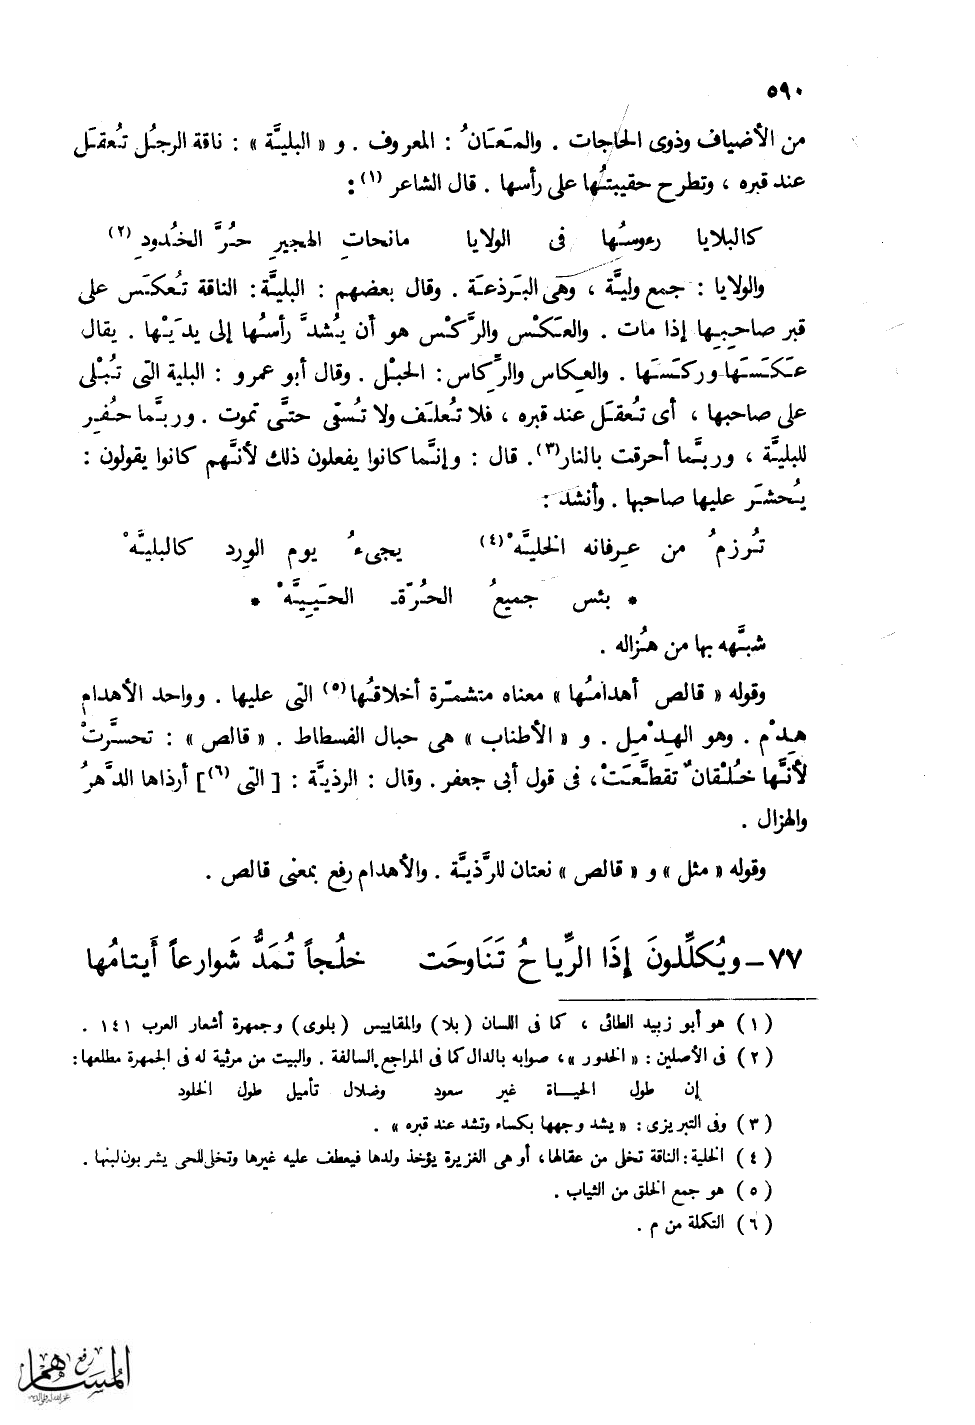 ٥٩٠
من الأضياف وذوى الحاجات . والمَعَانُ : المعروف . و « البليَّة » : ناقة الرجُل تُعقَل
عند قبره ، وتطرح حقيبتُها على رأسها . قال الشاعر (١) :
كالبلايا رءوسُها فى الولايا مانحاتِ الهجيرِ حُرَّ الخُدودِ (٢)
والولايا : جمع وليَّة ، وهى البَرذعة . وقال بعضهم : البليَّة : الناقة تُعكَس على
قبر صاحبِها إذا مات . والعَكْس والرَّكْس هو أن يُشدَّ رأسُها إلى يدَيْها . يقال
عَكَسَها وركَسَها . والعِكاس والرِّكاس : الحبْل . وقال أبو عمرو : البلية التى تُبْلى
على صاحبها ، أى تُعقَل عند قبره ، فلا تُعلَف ولا تُسقَى حتَّى تموت . وربَّما حُفِر
للبليَّة ، وربَّما أحرقت بالنار(٣). قال : وإنَّما كانوا يفعلون ذلك لأنَّهم كانوا يقولون :
يُحشَر عليها صاحبها . وأنشد :
تُرزمُ من عِرفانه الخليَّهْ (٤) يجىءُ يوم الوِرد كالبليَّهْ
* بئس جميعُ الحُرّة الحَيِيَّهْ *
شبَّهه بها من هُزاله .
وقوله « قالص أهدامُها » معناه متشمّرة أخلاقُها(٥) التى عليها . وواحد الأهدام
هِدْم . وهو الهِدْمِل . و « الأطناب » هى حبال الفسطاط . « قالص » : تحسَّرتْ
لأنَّها خُلْقانٌ تقطَّعَتْ ، فى قول أبى جعفر . وقال : الرذيَّة : [ التى (٦) ] أرذاها الدَّهرُ
والهزال .
وقوله « مثل » و « قالص » نعتان للرَّذيَّة . والأهدام رفع بمعنى قالص .
٧٧ – ويُكلِّلونَ إِذَا الرِّياحُ تَنَاوحَت خلُجاً تُمَدُّ شَوارعاً أَيتامُها
(١) هو أبو زبيد الطائى ، كما فى اللسان (بلا) والمقاييس (بلوى) وجمهرة أشعار العرب ١٤١ .
(٢) فى الأصلين : « الخدور » ، صوابه بالدال كما فى المراجع السالفة . والبيت من مرثية له فى الجمهرة مطلعها :
إن طول الحيـاة غير سعود وضلال تأميل طول الخلود
(٣) وفى التبريزى : « يشد وجهها بكساء وتشد عند قبره » .
(٤) الخلية : الناقة تخلى من عقالها ، أو هى الغزيرة يؤخذ ولدها فيعطف عليه غيرها وتخلى للحى يشربون لبنها .
(٥) هو جمع الخلق من الثياب .
(٦) التكملة من م .